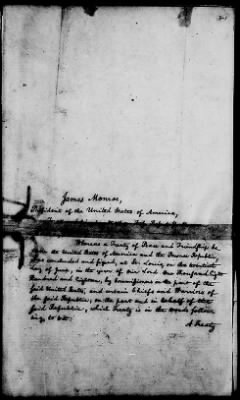 James Monroe,
President of the United States of America,
Whereas a Treaty of Peace and Friendship be
the United States of America and the Pawnee Republic,
was concluded and signed, at St. Louis, on the twentieth
day of June, in the year of our Lord One Thousand Eight
Hundred and Eighteen, by Commissioners on the part of the
said United States, and certain Chiefs and Warriors of
the said Republic, on the part and in behalf of the
said Republic, which Treaty is in the words follow
ing, to wit.
A Treaty